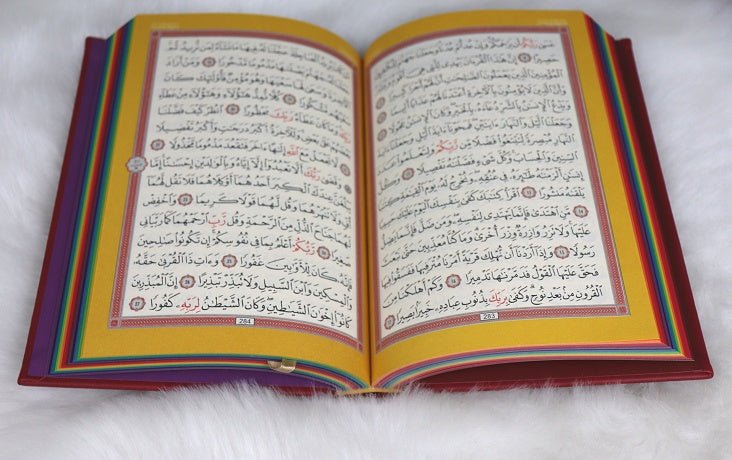 عَسَىٰ رَبُّكُمْ أَن يَرْحَمَكُمْ وَإِنْ عُدتُّمْ عُدْنَا وَجَعَلْنَا جَهَنَّمَ لِلْكَٰفِرِينَ
حَصِيرًا ٨ إِنَّ هَٰذَا ٱلْقُرْءَانَ يَهْدِى لِلَّتِى هِىَ أَقْوَمُ وَيُبَشِّرُ
ٱلْمُؤْمِنِينَ ٱلَّذِينَ يَعْمَلُونَ ٱلصَّٰلِحَٰتِ أَنَّ لَهُمْ أَجْرًا كَبِيرًا ٩
وَأَنَّ ٱلَّذِينَ لَا يُؤْمِنُونَ بِٱلْءَاخِرَةِ أَعْتَدْنَا لَهُمْ عَذَابًا أَلِيمًا ١٠
وَيَدْعُ ٱلْإِنسَٰنُ بِٱلشَّرِّ دُعَآءَهُۥ بِٱلْخَيْرِ وَكَانَ ٱلْإِنسَٰنُ عَجُولًا ١١
وَجَعَلْنَا ٱلَّيْلَ وَٱلنَّهَارَ ءَايَتَيْنِ فَمَحَوْنَآ ءَايَةَ ٱلَّيْلِ وَجَعَلْنَآ ءَايَةَ
ٱلنَّهَارِ مُبْصِرَةً لِّتَبْتَغُوا۟ فَضْلًا مِّن رَّبِّكُمْ وَلِتَعْلَمُوا۟ عَدَدَ
ٱلسِّنِينَ وَٱلْحِسَابَ وَكُلَّ شَىْءٍ فَصَّلْنَٰهُ تَفْصِيلًا ١٢ وَكُلَّ
إِنسَٰنٍ أَلْزَمْنَٰهُ طَٰٓئِرَهُۥ فِى عُنُقِهِۦ وَنُخْرِجُ لَهُۥ يَوْمَ ٱلْقِيَٰمَةِ كِتَٰبًا
يَلْقَىٰهُ مَنشُورًا ١٣ ٱقْرَأْ كِتَٰبَكَ كَفَىٰ بِنَفْسِكَ ٱلْيَوْمَ عَلَيْكَ حَسِيبًا
١٤ مَّنِ ٱهْتَدَىٰ فَإِنَّمَا يَهْتَدِى لِنَفْسِهِۦ وَمَن ضَلَّ فَإِنَّمَا يَضِلُّ
عَلَيْهَا وَلَا تَزِرُ وَازِرَةٌ وِزْرَ أُخْرَىٰ وَمَا كُنَّا مُعَذِّبِينَ حَتَّىٰ نَبْعَثَ
رَسُولًا ١٥ وَإِذَآ أَرَدْنَآ أَن نُّهْلِكَ قَرْيَةً أَمَرْنَا مُتْرَفِيهَا فَفَسَقُوا۟ فِيهَا
فَحَقَّ عَلَيْهَا ٱلْقَوْلُ فَدَمَّرْنَٰهَا تَدْمِيرًا ١٦ وَكَمْ أَهْلَكْنَا مِنَ
ٱلْقُرُونِ مِنۢ بَعْدِ نُوحٍ وَكَفَىٰ بِرَبِّكَ بِذُنُوبِ عِبَادِهِۦ خَبِيرًۢا بَصِيرًا ١٧
283
مَّن كَانَ يُرِيدُ ٱلْعَاجِلَةَ عَجَّلْنَا لَهُۥ فِيهَا مَا نَشَآءُ لِمَن نُّرِيدُ ثُمَّ
جَعَلْنَا لَهُۥ جَهَنَّمَ يَصْلَىٰهَا مَذْمُومًا مَّدْحُورًا ١٨ وَمَنْ أَرَادَ
ٱلْءَاخِرَةَ وَسَعَىٰ لَهَا سَعْيَهَا وَهُوَ مُؤْمِنٌ فَأُو۟لَٰٓئِكَ كَانَ
سَعْيُهُم مَّشْكُورًا ١٩ كُلًّا نُّمِدُّ هَٰٓؤُلَآءِ وَهَٰٓؤُلَآءِ مِنْ عَطَآءِ
رَبِّكَ وَمَا كَانَ عَطَآءُ رَبِّكَ مَحْظُورًا ٢٠ ٱنظُرْ كَيْفَ فَضَّلْنَا
بَعْضَهُمْ عَلَىٰ بَعْضٍ وَلَلْءَاخِرَةُ أَكْبَرُ دَرَجَٰتٍ وَأَكْبَرُ تَفْضِيلًا
٢١ لَّا تَجْعَلْ مَعَ ٱللَّهِ إِلَٰهًا ءَاخَرَ فَتَقْعُدَ مَذْمُومًا مَّخْذُولًا ٢٢
وَقَضَىٰ رَبُّكَ أَلَّا تَعْبُدُوٓا۟ إِلَّآ إِيَّاهُ وَبِٱلْوَٰلِدَيْنِ إِحْسَٰنًا إِمَّا
يَبْلُغَنَّ عِندَكَ ٱلْكِبَرَ أَحَدُهُمَآ أَوْ كِلَاهُمَا فَلَا تَقُل لَّهُمَآ
أُفٍّ وَلَا تَنْهَرْهُمَا وَقُل لَّهُمَا قَوْلًا كَرِيمًا ٢٣ وَٱخْفِضْ
لَهُمَا جَنَاحَ ٱلذُّلِّ مِنَ ٱلرَّحْمَةِ وَقُل رَّبِّ ٱرْحَمْهُمَا كَمَا رَبَّيَانِى
صَغِيرًا ٢٤ رَّبُّكُمْ أَعْلَمُ بِمَا فِى نُفُوسِكُمْ إِن تَكُونُوا۟ صَٰلِحِينَ
فَإِنَّهُۥ كَانَ لِلْأَوَّٰبِينَ غَفُورًا ٢٥ وَءَاتِ ذَا ٱلْقُرْبَىٰ حَقَّهُۥ
وَٱلْمِسْكِينَ وَٱبْنَ ٱلسَّبِيلِ وَلَا تُبَذِّرْ تَبْذِيرًا ٢٦ إِنَّ ٱلْمُبَذِّرِينَ
كَانُوٓا۟ إِخْوَٰنَ ٱلشَّيَٰطِينِ وَكَانَ ٱلشَّيْطَٰنُ لِرَبِّهِۦ كَفُورًا ٢٧
284